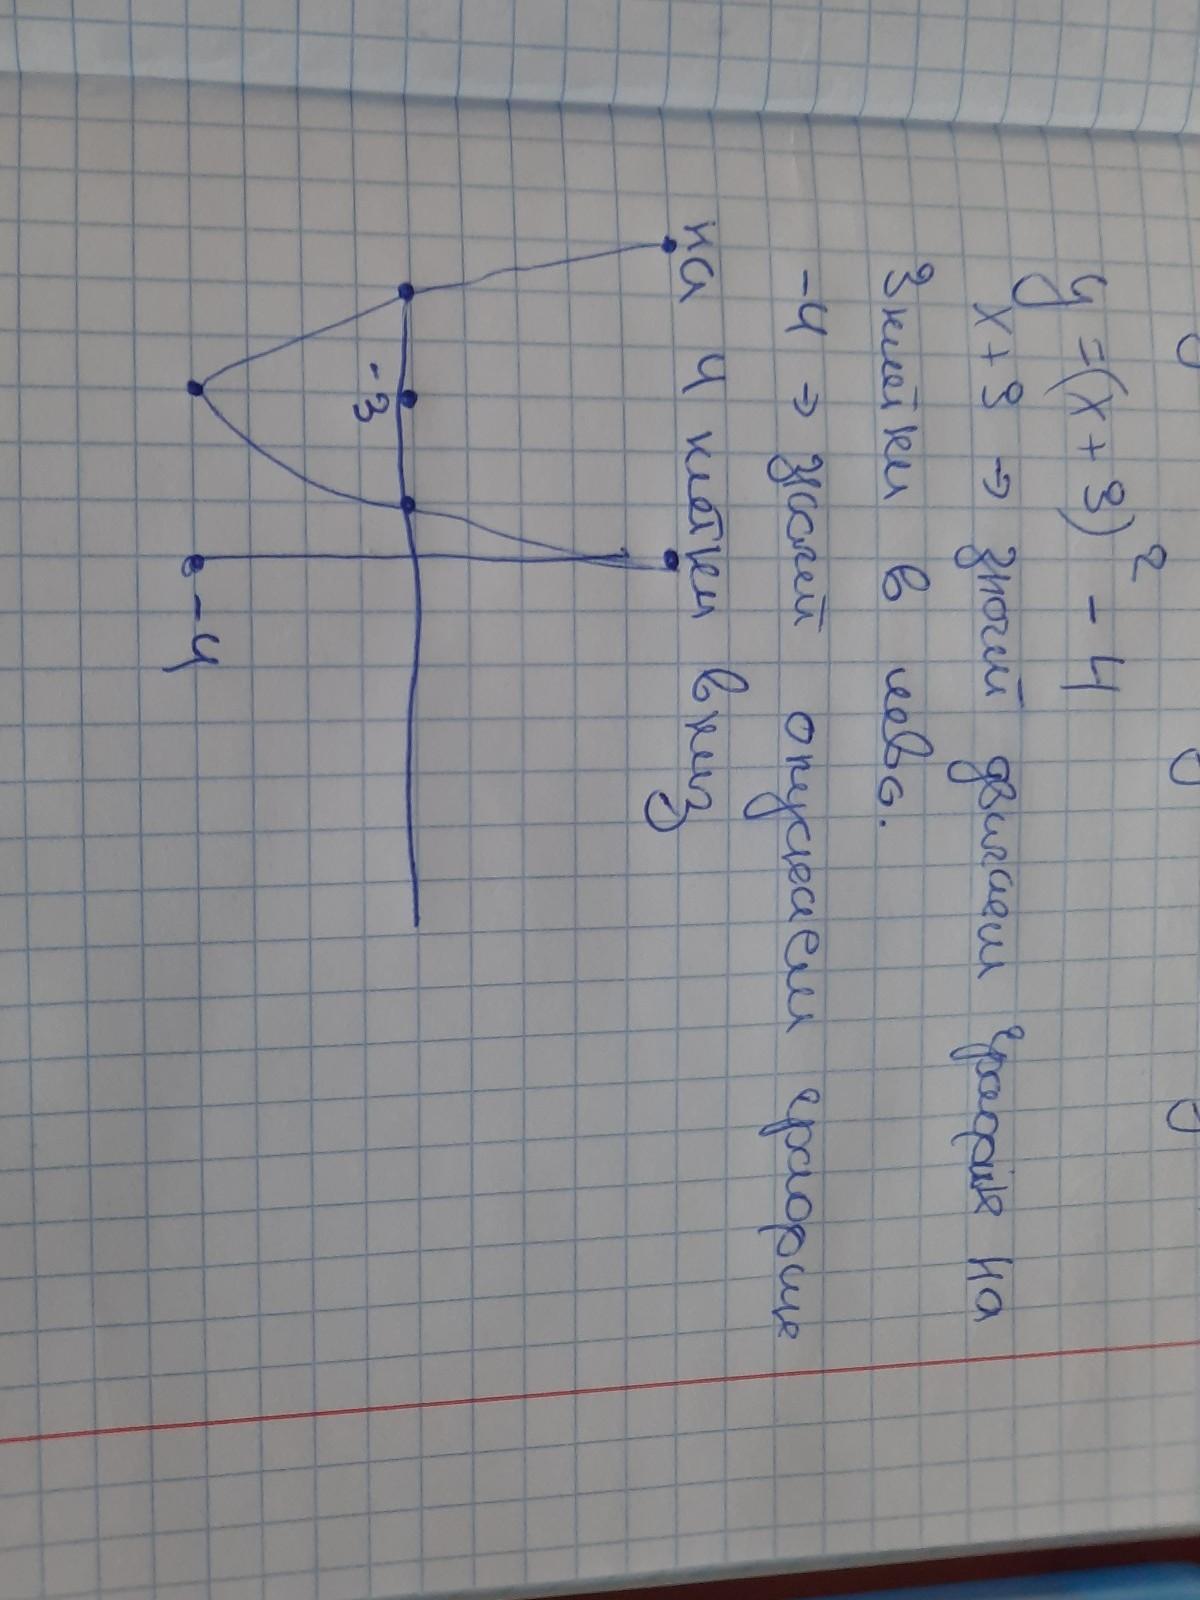 y = (x + 3)² - 4
x + 3 → значит двигаем график на
3 клетки в лево.
-4 → значит опускаем график
на 4 клетки вниз
-3
-4